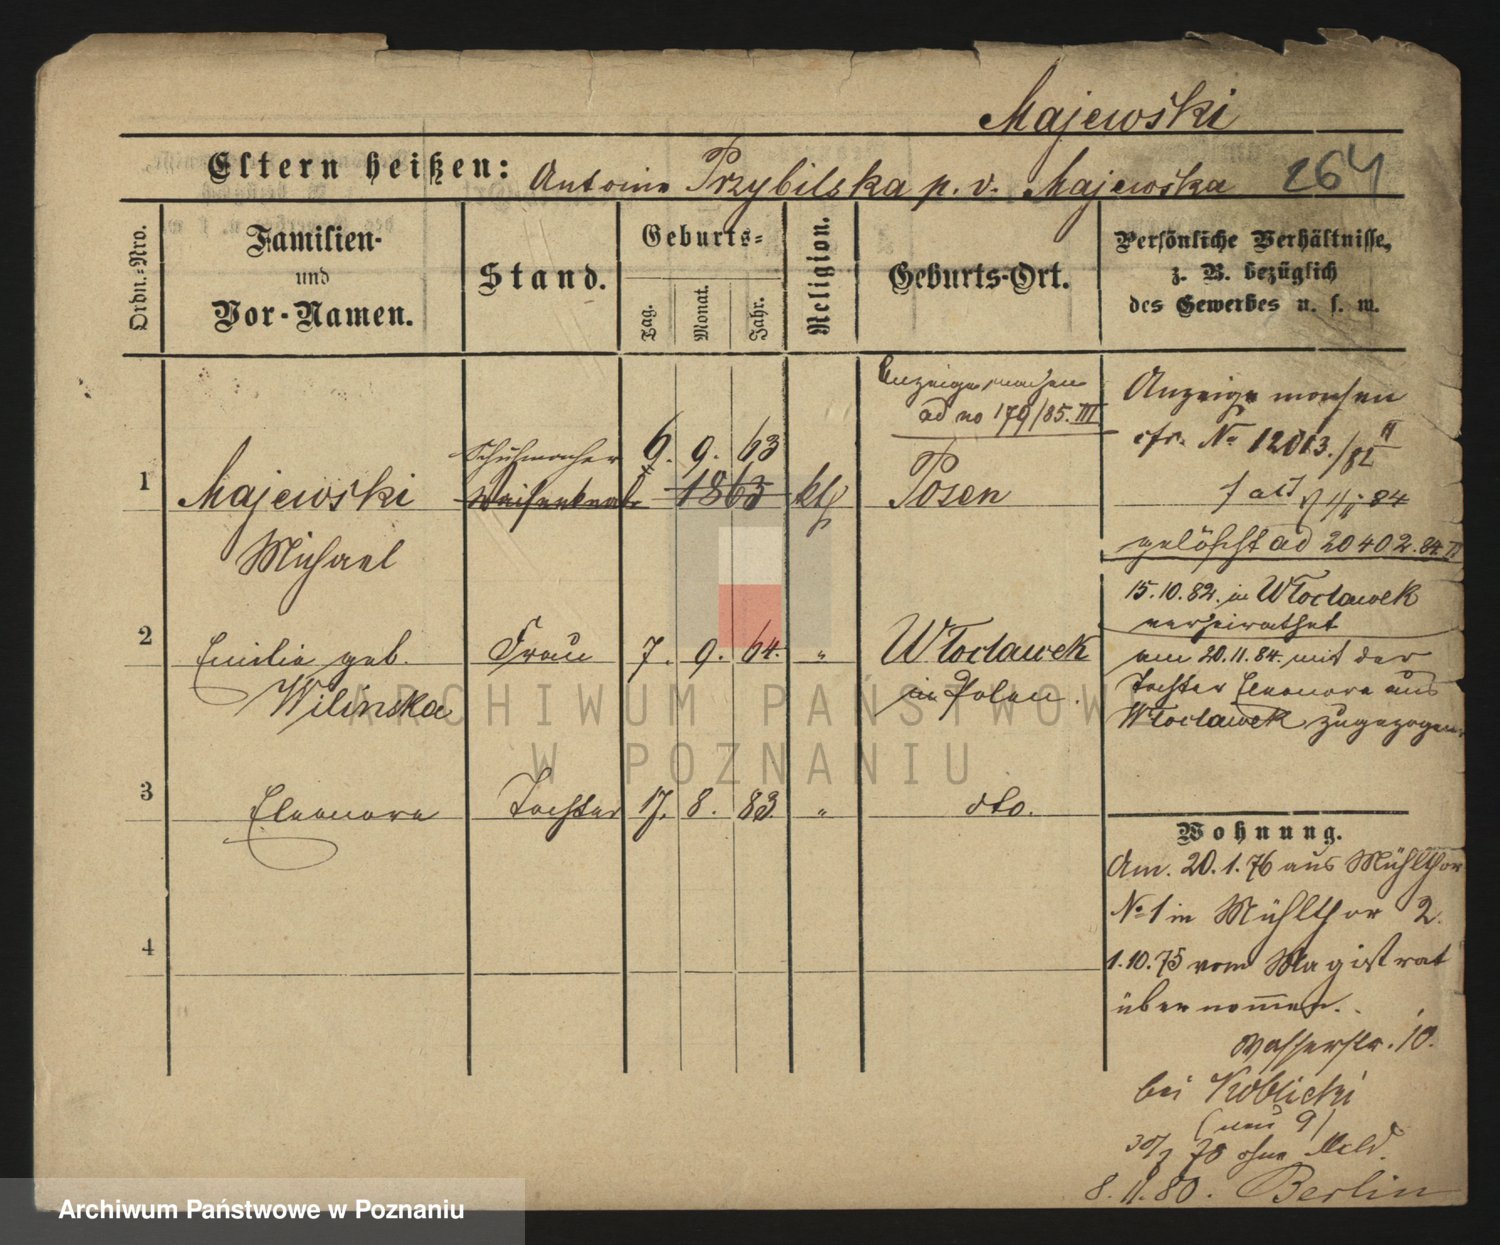 Majewski
Eltern heißen: Antonie Przybilska p. v. Majewska 264
Ordn.-Nro.
Familien-
und
Vor-Namen.
Stand.
Geburts-
Tag.
Monat.
Jahr.
Religion.
Geburts-Ort.
Persönliche Verhältnisse,
z. B. bezüglich
des Gewerbes u. s. w.
1
Majewski
Michael
Schuhmacher
Waisenknabe
6. 9. 63
1865
kth
Anzeige machen
ad no 179/85. III
Posen
Anzeige machen
cfr. No 12013./82 II
84
gelöscht ad 20402. 84. II
2
Emilie geb.
Wilinska
Frau
7. 9. 64.
"
Włocławek
in Polen.
15.10.82. in Włocławek
verheirathet
am 20.11.84. mit der
Tochter Eleonore aus
Włocławek zugezogen
3
Eleonore
Tochter
17. 8. 83.
"
dto.
4
Wohnung.
Am. 20.1.76 aus Mühlthor
No 1 in Mühlthor 2.
1.10.75 vom Magistrat
übernommen.
Wasserstr. 10.
bei Koblicki
(neu 9)
78 ohne Meld.
8.11.80. Berlin
ARCHIWUM PAŃSTWOWE
W POZNANIU
Archiwum Państwowe w Poznaniu